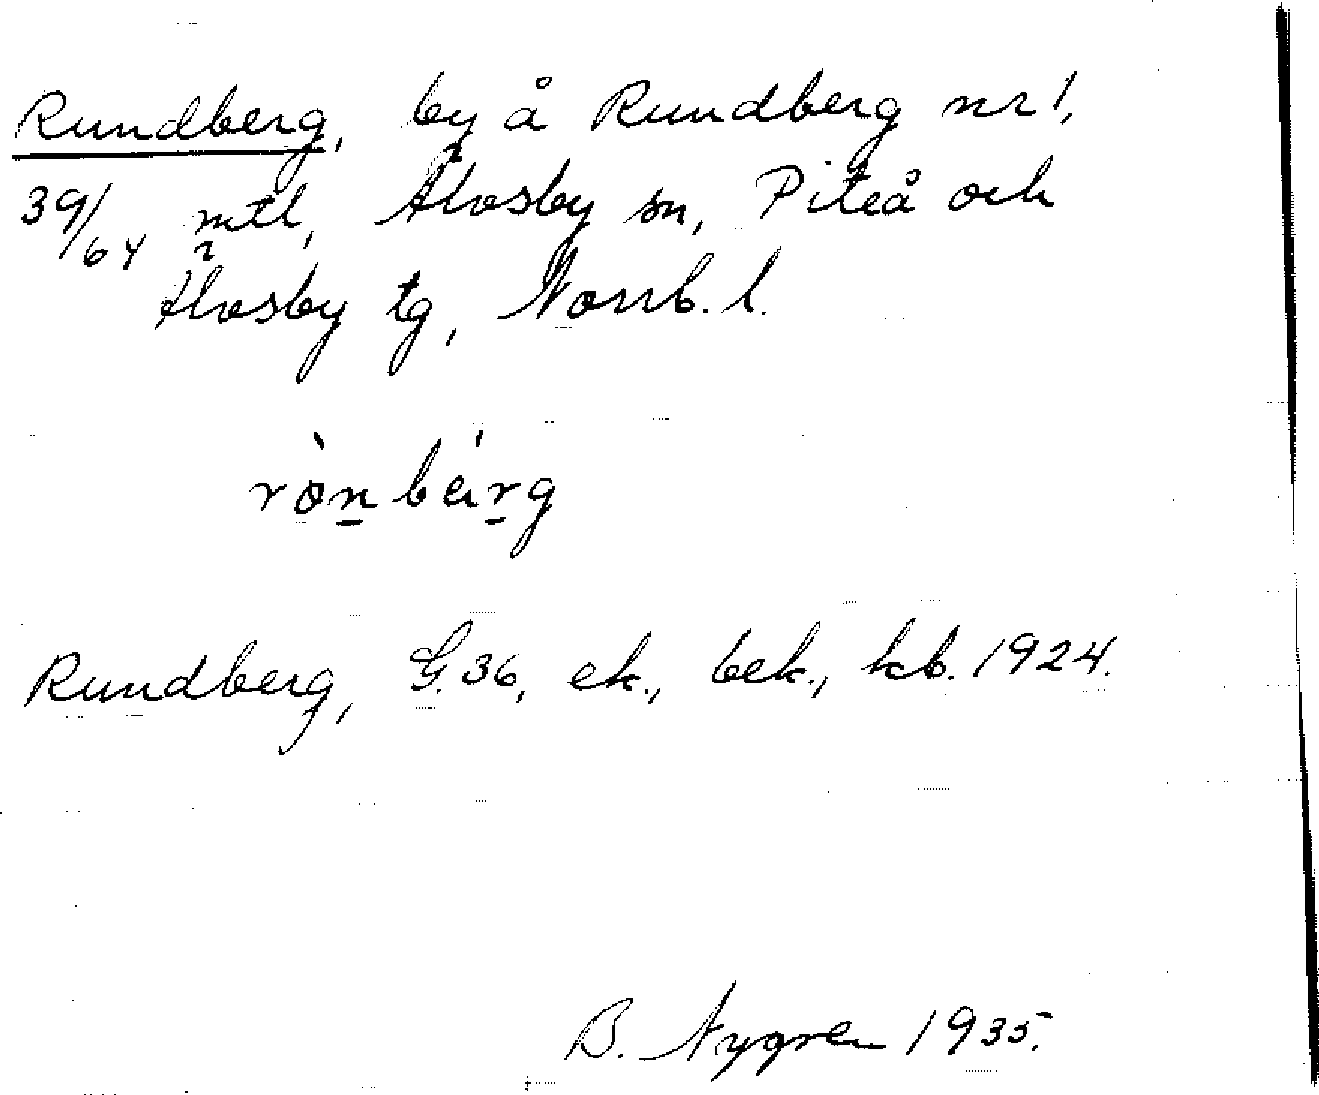 Rundberg, by å Rundberg nr 1,
39/64 mtl, Älvsby sn, Piteå och
Älvsby tg, Norrb. l.
rò̀n̠béir̠g
Rundberg, G. 36, ek., bek., kb. 1924.
B. Nygren 1935.